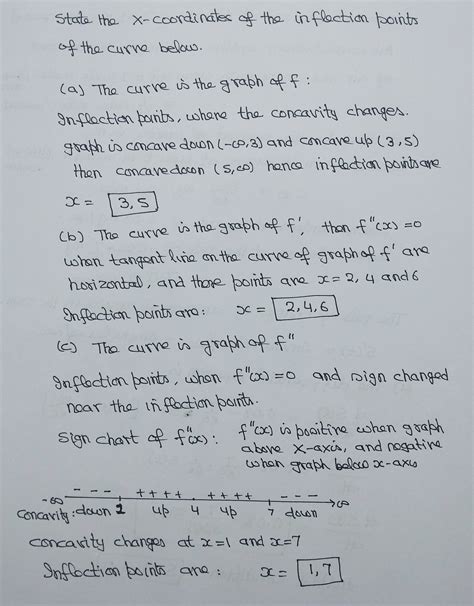 State the x-coordinates of the inflection points
of the curve below.
(a) The curve is the graph of f :
Inflection points, where the concavity changes.
graph is concave down (-∞,3) and concave up (3,5)
then concave down (5,∞) hence inflection points are
x = 3,5
(b) The curve is the graph of f', then f"(x) = 0
when tangent line on the curve of graph of f' are
horizontal, and those points are x = 2, 4 and 6
Inflection points are: x = 2,4,6
(c) The curve is graph of f"
Inflection points, when f"(x) = 0 and sign changed
near the inflection points.
Sign chart of f"(x): f"(x) is positive when graph
above x-axis, and negative
when graph below x-axis
-∞ - - - + + + + + + + + - - - ∞
concavity: down 1 up 4 up 7 down
concavity changes at x=1 and x=7
Inflection points are : x = 1,7